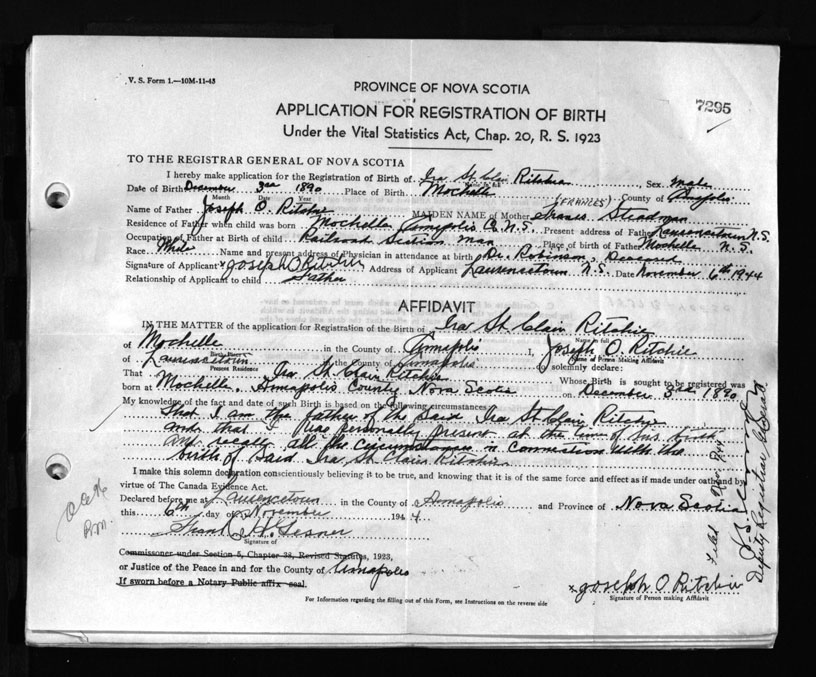 V. S. Form 1.—10M-11-43
PROVINCE OF NOVA SCOTIA
7295
APPLICATION FOR REGISTRATION OF BIRTH
Under the Vital Statistics Act, Chap. 20, R. S. 1923
TO THE REGISTRAR GENERAL OF NOVA SCOTIA
I hereby make application for the Registration of Birth of Ira St Clair Ritchie Sex Male
Date of Birth December 3rd 1890 Place of Birth Mochelle County of Annapolis
Month Date Year
(FRANCES)
Name of Father Joseph O. Ritchie MAIDEN NAME of Mother Frances Steadman
Residence of Father when child was born Mochelle Annapolis Co N.S. Present address of Father Lawrencetown N.S.
Occupation of Father at Birth of child Railroad Section man Place of birth of Father Mochelle N.S.
Race White Name and present address of Physician in attendance at birth Dr. Robinson, Deceased
Signature of Applicant x Joseph O Ritchie Address of Applicant Lawrencetown N.S. Date November 6th 1944
Relationship of Applicant to child Father
AFFIDAVIT
IN THE MATTER of the application for Registration of the Birth of Ira St Clair Ritchie
Name in full
of Mochelle in the County of Annapolis I, Joseph O Ritchie
Birth Place Name of Person Making Affidavit
of Lawrencetown in the County of Annapolis do solemnly declare:
Present Residence
That Ira St Clair Ritchie Whose Birth is sought to be registered was
born at Mochelle, Annapolis County Nova Scotia on December 3rd 1890
My knowledge of the fact and date of such Birth is based on the following circumstances:
That I am the father of the said Ira St Clair Ritchie
and that I was personally present at the time of his birth
and recall all the circumstances in connection with the
birth of said Ira St Clair Ritchie.
I make this solemn declaration conscientiously believing it to be true, and knowing that it is of the same force and effect as if made under oath and by
virtue of The Canada Evidence Act.
Declared before me at Lawrencetown in the County of Annapolis and Province of Nova Scotia
this 6th day of November 1944
Frank H.
Signature of
Commissioner under Section 5, Chapter 38, Revised Statutes, 1923,
or Justice of the Peace in and for the County of Annapolis
If sworn before a Notary Public affix seal.
x Joseph O Ritchie
Signature of Person making Affidavit
For Information regarding the filling out of this Form, see Instructions on the reverse side
Filed Nov.
Deputy Registrar